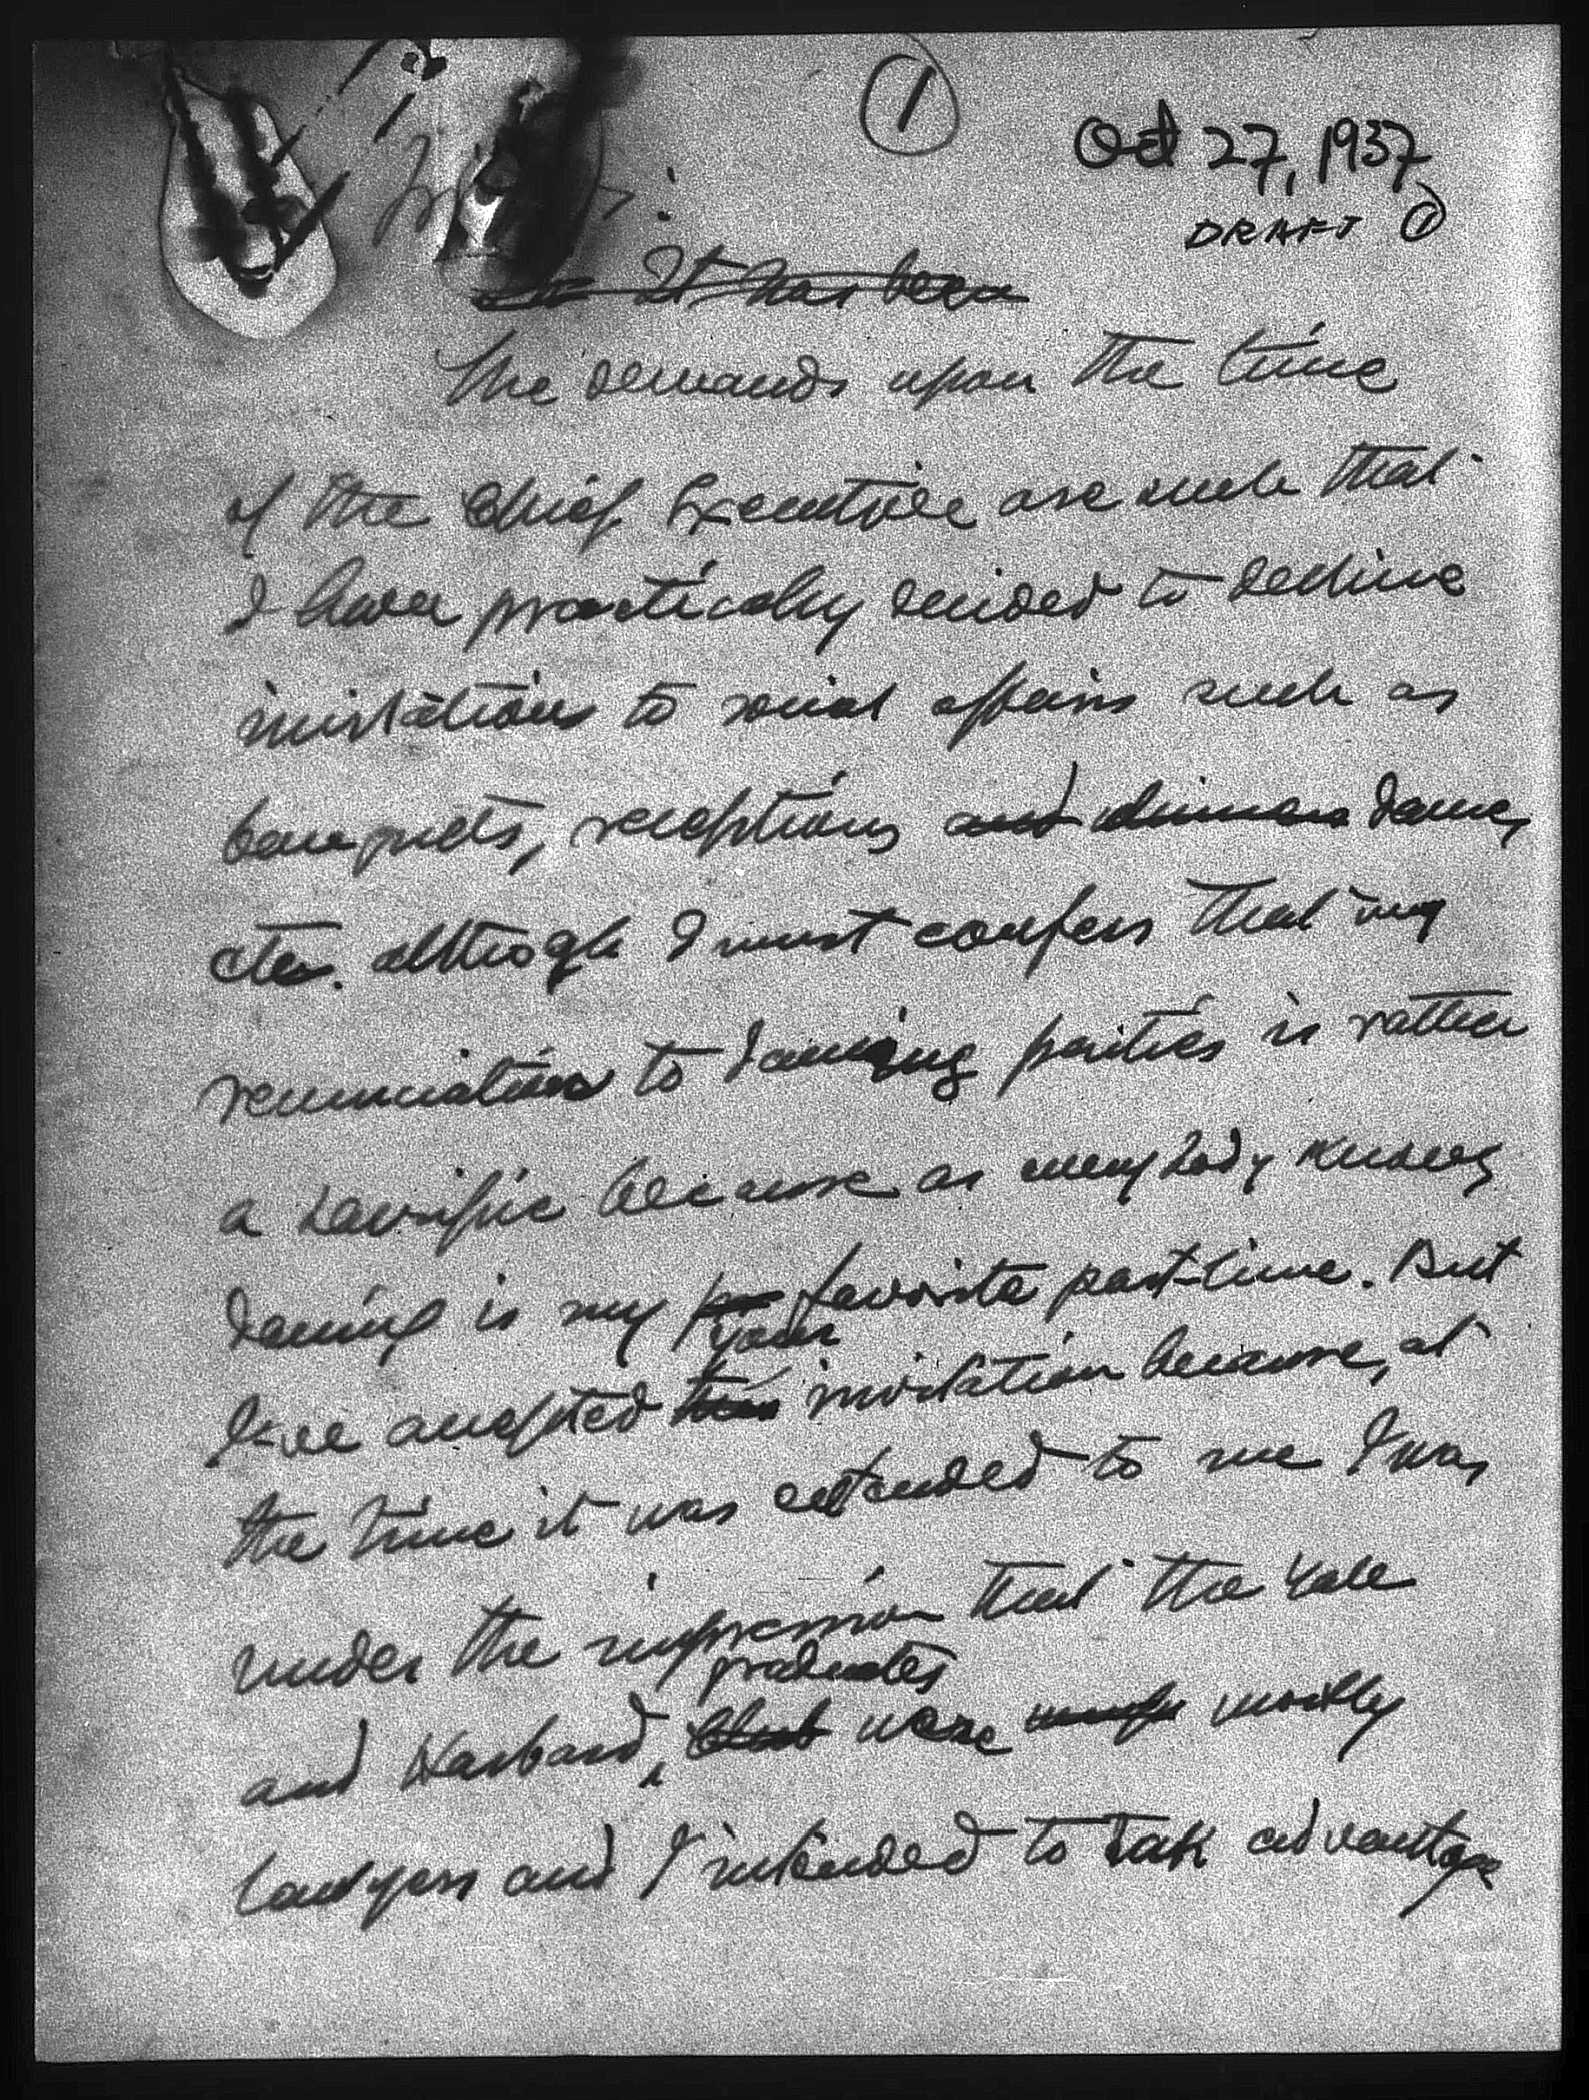 1
Oct 27, 1937
DRAFT 1
It has been
The demands upon the time
of the Chief Executive are such that
I have practically decided to decline
invitations to social affairs such as
banquets, receptions and dinners dance,
etc. althogh I must confess that my
renunciation to dancing parties is rather
a sacrific because as everybody knows
dancing is my favorite past-time. But
your
I've accepted this invitation because, at
the time it was extended to me I was
under the impression that the Yale
graduates
and Harbard, Club were mostly
lawyers and I intended to take advantage